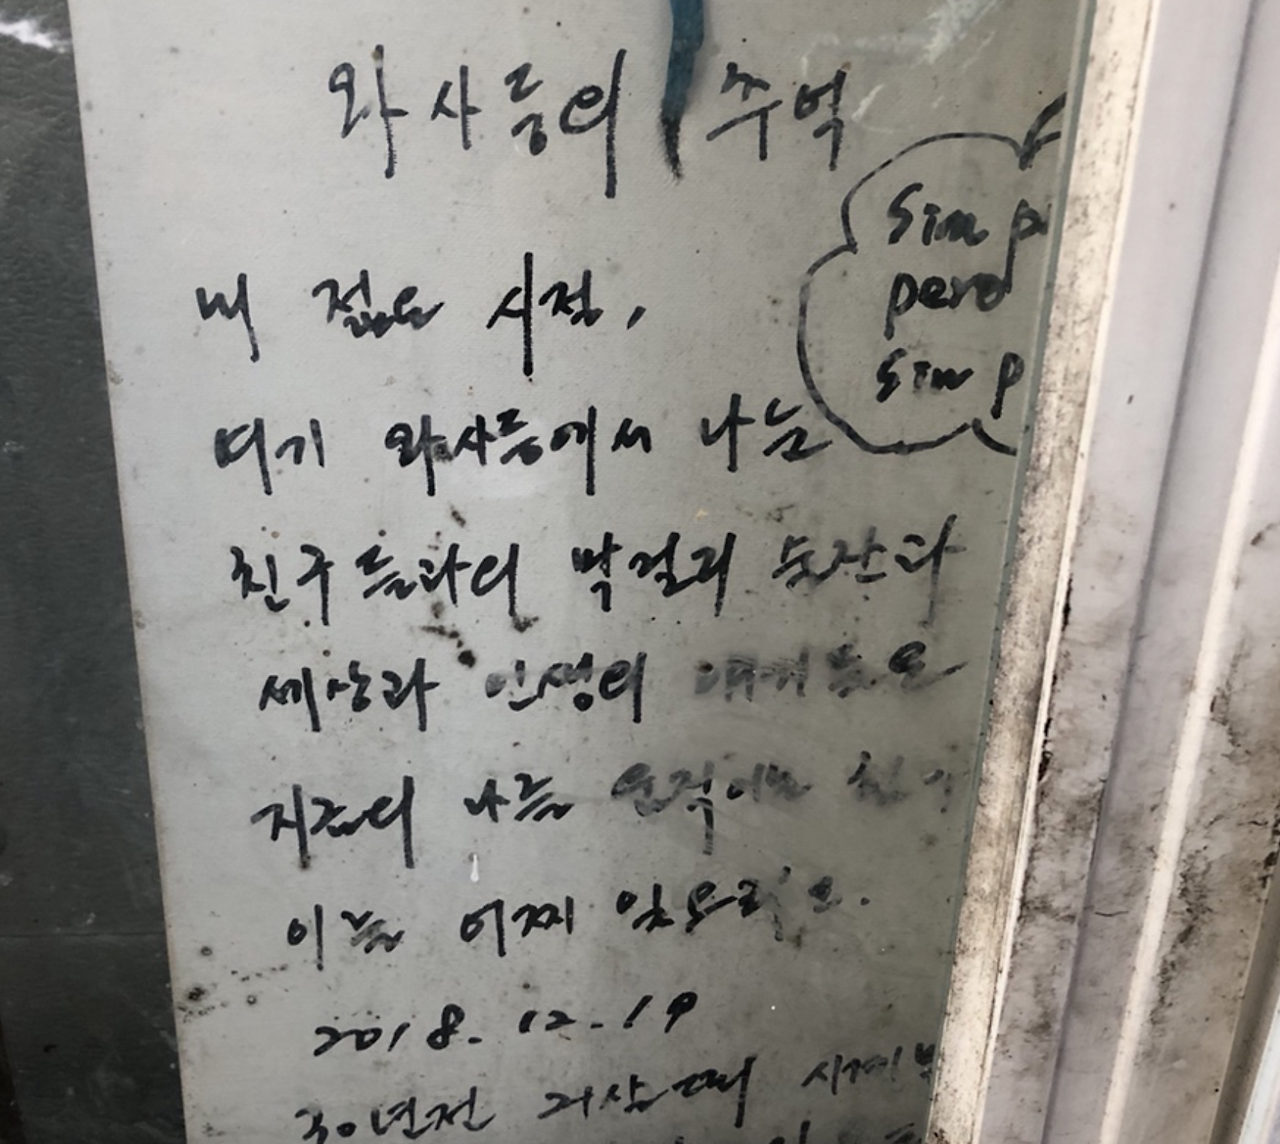 와사등의 추억
내 젊은 시절,
여기 와사등에서 나는
친구들과의 막걸리 순잔과
세상과 인생의 얘기들은
지금의 나를
이를 어찌 잊으리오.
2018. 12. 19
30년전 고삼때
Sim
pero
sin p